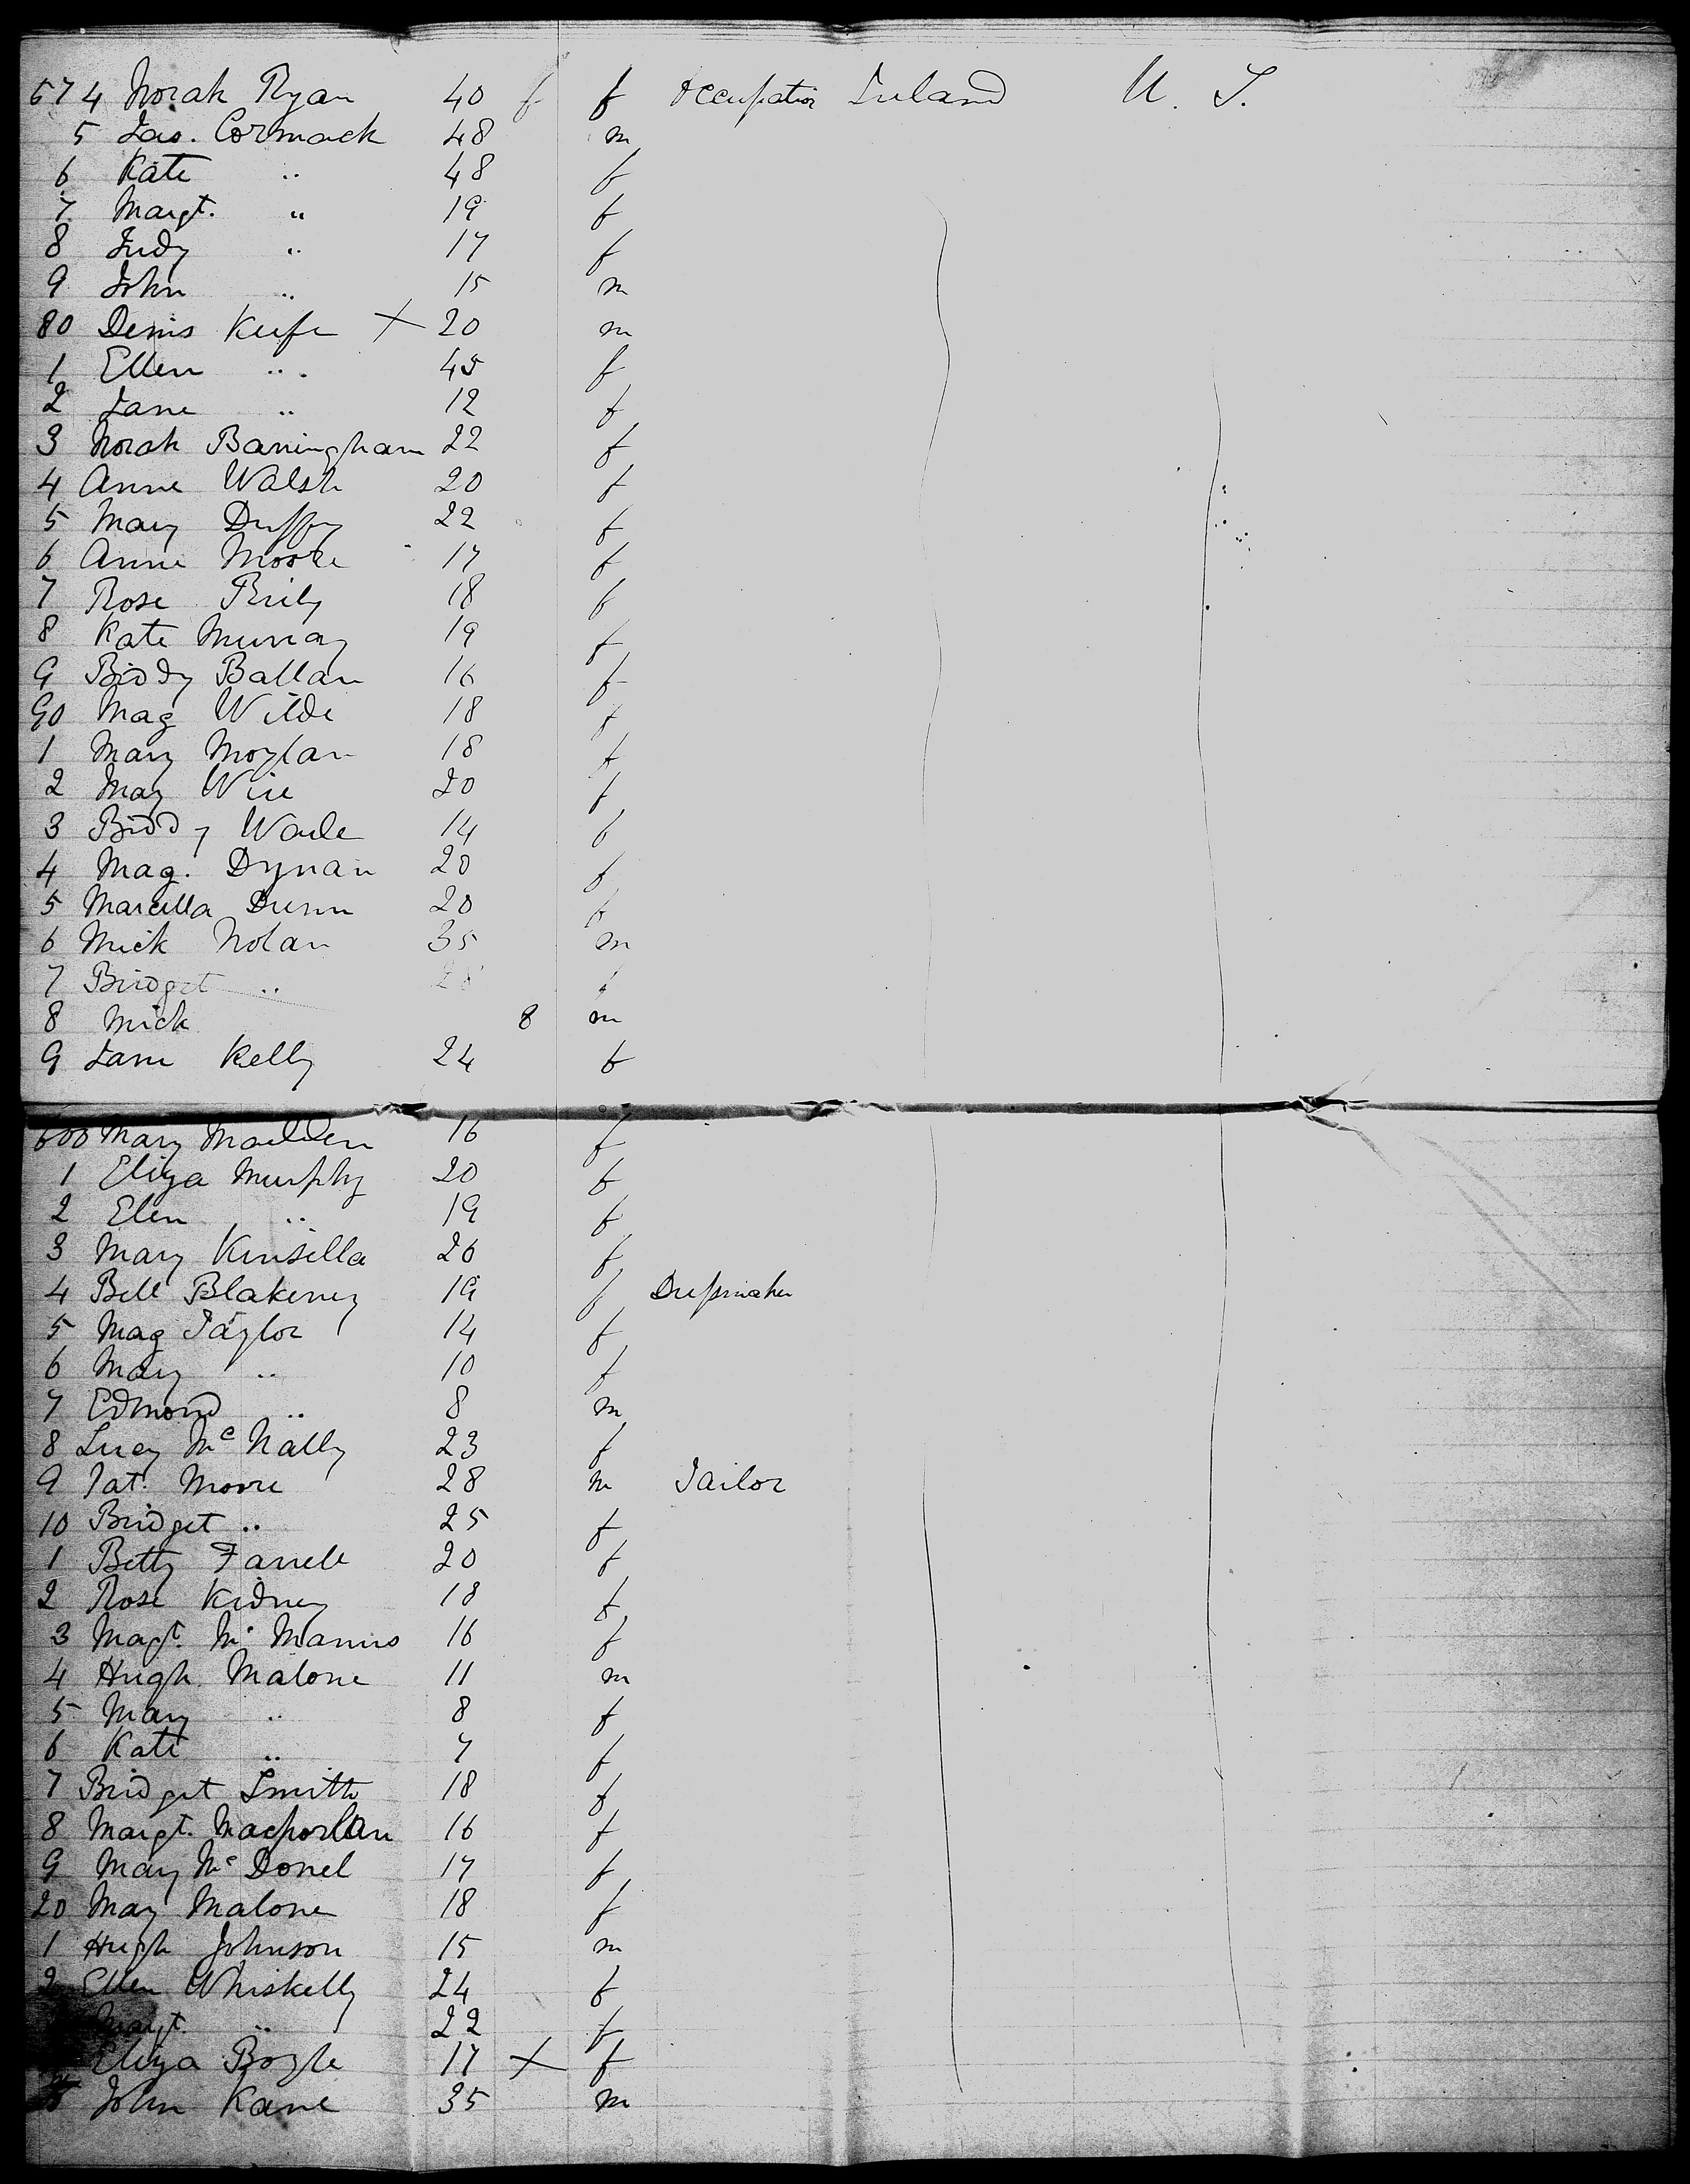 574 Norah Ryan 40 f f occupation Ireland U. S.
5 Jas. Cormack 48 m
6 Kate " 48 f
7 Margt. " 19 f
8 Judy " 17 f
9 John " 15 m
80 Denis Keefe X 20 m
1 Ellen " 45 f
2 Jane " 12 f
3 Norah Banningham 22 f
4 Anne Walsh 20 f
5 Mary Duffy 22 f
6 Anne Moore 17 f
7 Rose Reily 18 f
8 Kate Murray 19 f
9 Biddy Ballan 16 f
90 Mag Wilde 18 f
1 Mary Moylan 18 f
2 May Wire 20 f
3 Biddy Wade 14 f
4 Mag. Dynan 20 f
5 Marcella Dunn 20 f
6 Mick Nolan 35 m
7 Bridget " 28 f
8 Mick 8 m
9 Jane Kelly 24 f
600 Mary Madden 16 f
1 Eliza Murphy 20 f
2 Elen " 19 f
3 Mary Kinsella 26 f
4 Bell Blakeney 19 f Dressmaker
5 Mag Taylor 14 f
6 Mary " 10 f
7 Edmond " 8 m
8 Lucy Mc Nally 23 f
9 Pat. Moore 28 m Tailor
10 Bridget " 25 f
1 Betty Farrell 20 f
2 Rose Kidney 18 f
3 Magt. Mc Manus 16 f
4 Hugh Malone 11 m
5 Mary " 8 f
6 Kate " 7 f
7 Bridget Smith 18 f
8 Margt. 16 f
9 Mary Mc Donel 17 f
20 May Malone 18 f
1 Hugh Johnson 15 m
2 Ellen Whiskelly 24 f
Margt. " 22 f
Eliza Boyle 17 X f
5 John Kane 35 m